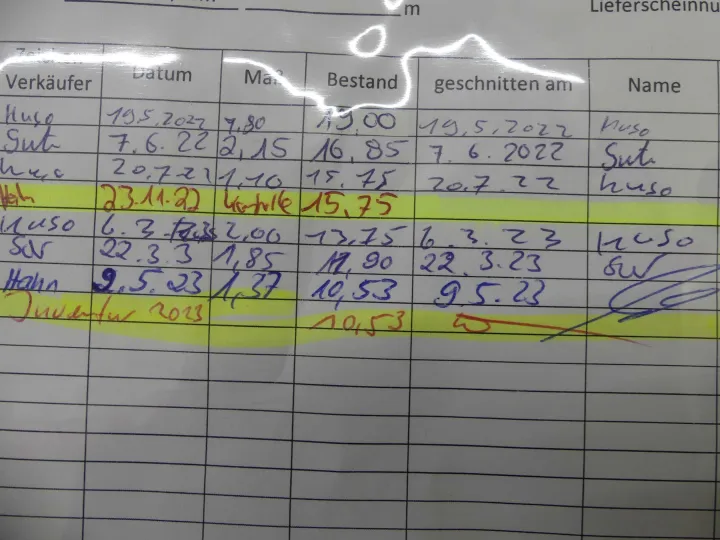 m Lieferscheinnu
Zeichen
Verkäufer Datum Maß Bestand geschnitten am Name
Kuso 19.5.2022 1,80 19,00 19.5.2022 Kuso
7.6.22 2,15 16,85 7.6.2022
Kuso 20.7.22 1,10 15,75 20.7.22 Kuso
23.11.22 15,75
Kuso 6.3. 2,00 13,75 6.3.23 Kuso
22.3.3 1,85 11,90 22.3.23
Hahn 9.5.23 1,37 10,53 9.5.23
Inventur 2023 10,53